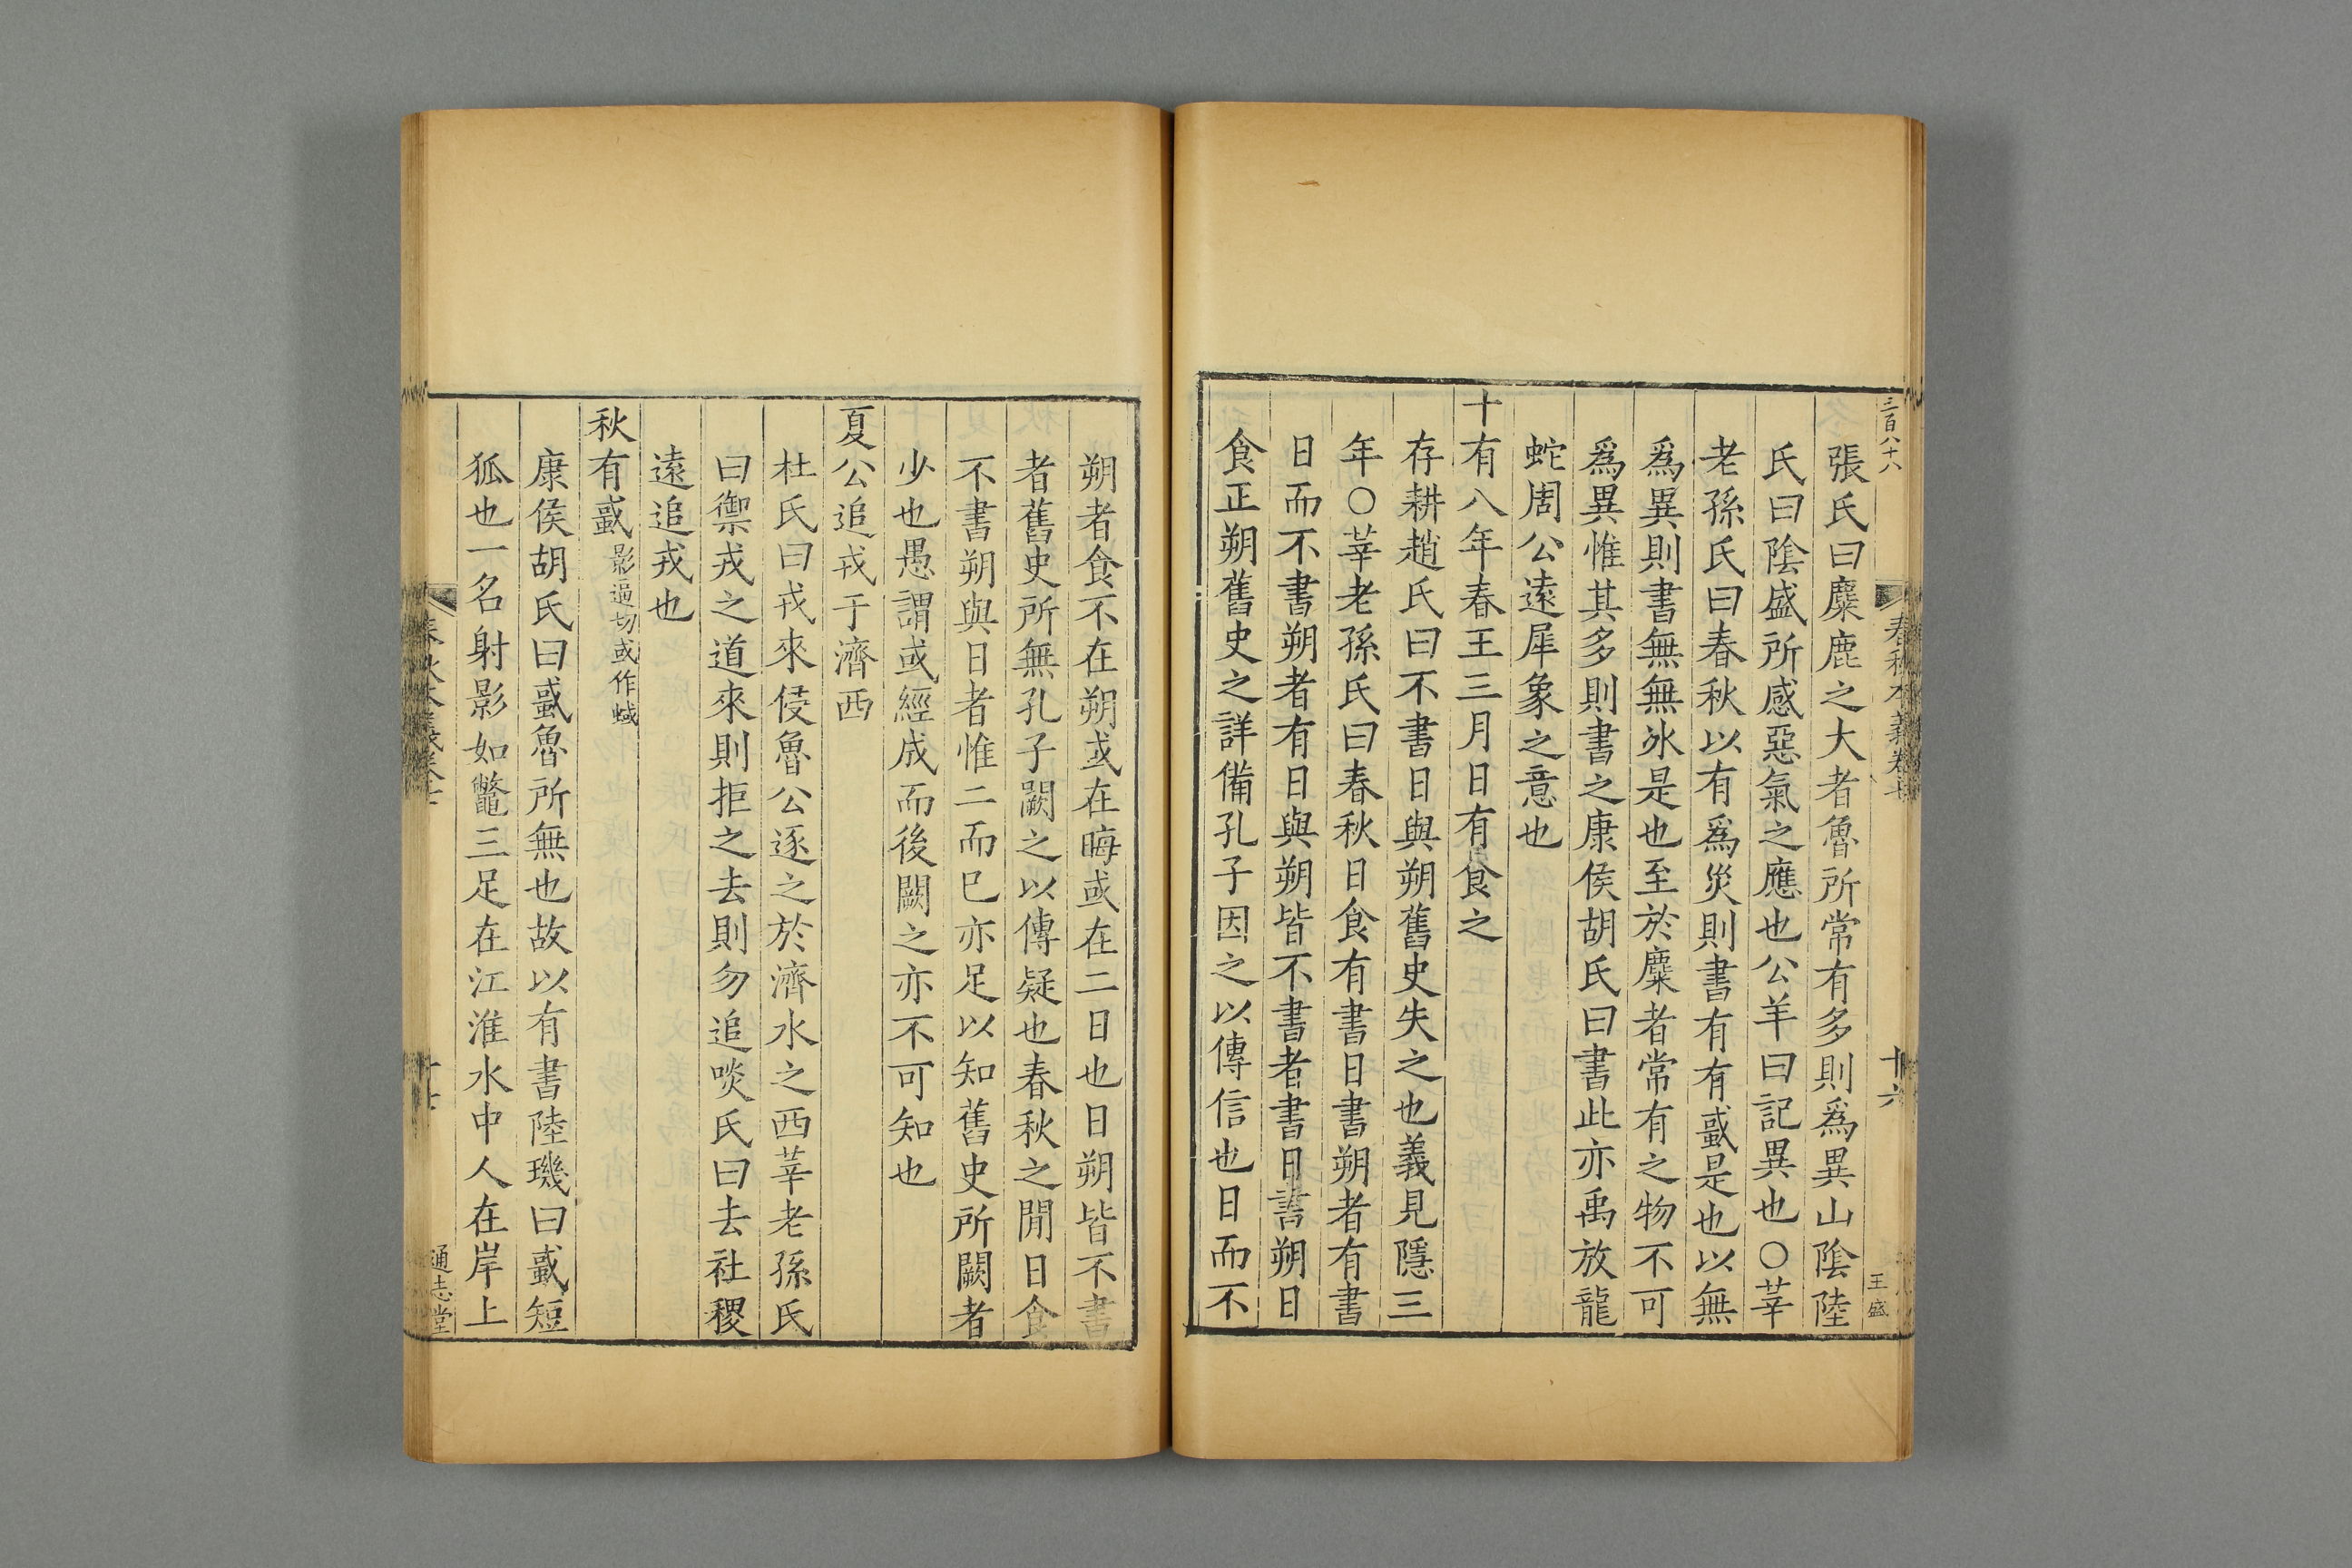 三百八十八
春秋本義卷七
十六
王盛
張氏曰麋鹿之大者魯所常有多則爲異山陰陸
氏曰陰盛所感惡氣之應也公羊曰記異也○莘
老孫氏曰春秋以有爲災則書有有蜮是也以無
爲異則書無無冰是也至於麋者常有之物不可
爲異惟其多則書之康侯胡氏曰書此亦禹放龍
蛇周公遠犀象之意也
十有八年春王三月日有食之
存耕趙氏曰不書日與朔舊史失之也義見隱三
年○莘老孫氏曰春秋日食有書日書朔者有書
日而不書朔者有日與朔皆不書者書日書朔日
食正朔舊史之詳備孔子因之以傳信也日而不
朔者食不在朔或在晦或在二日也日朔皆不書
者舊史所無孔子闕之以傳疑也春秋之閒日食
不書朔與日者惟二而已亦足以知舊史所闕者
少也愚謂或經成而後闕之亦不可知也
夏公追戎于濟西
杜氏曰戎來侵魯公逐之於濟水之西莘老孫氏
曰禦戎之道來則拒之去則勿追啖氏曰去社稷
遠追戎也
秋有蜮影逼切或作蜮
康侯胡氏曰蜮魯所無也故以有書陸璣曰蜮短
狐也一名射影如鼈三足在江淮水中人在岸上
通志堂